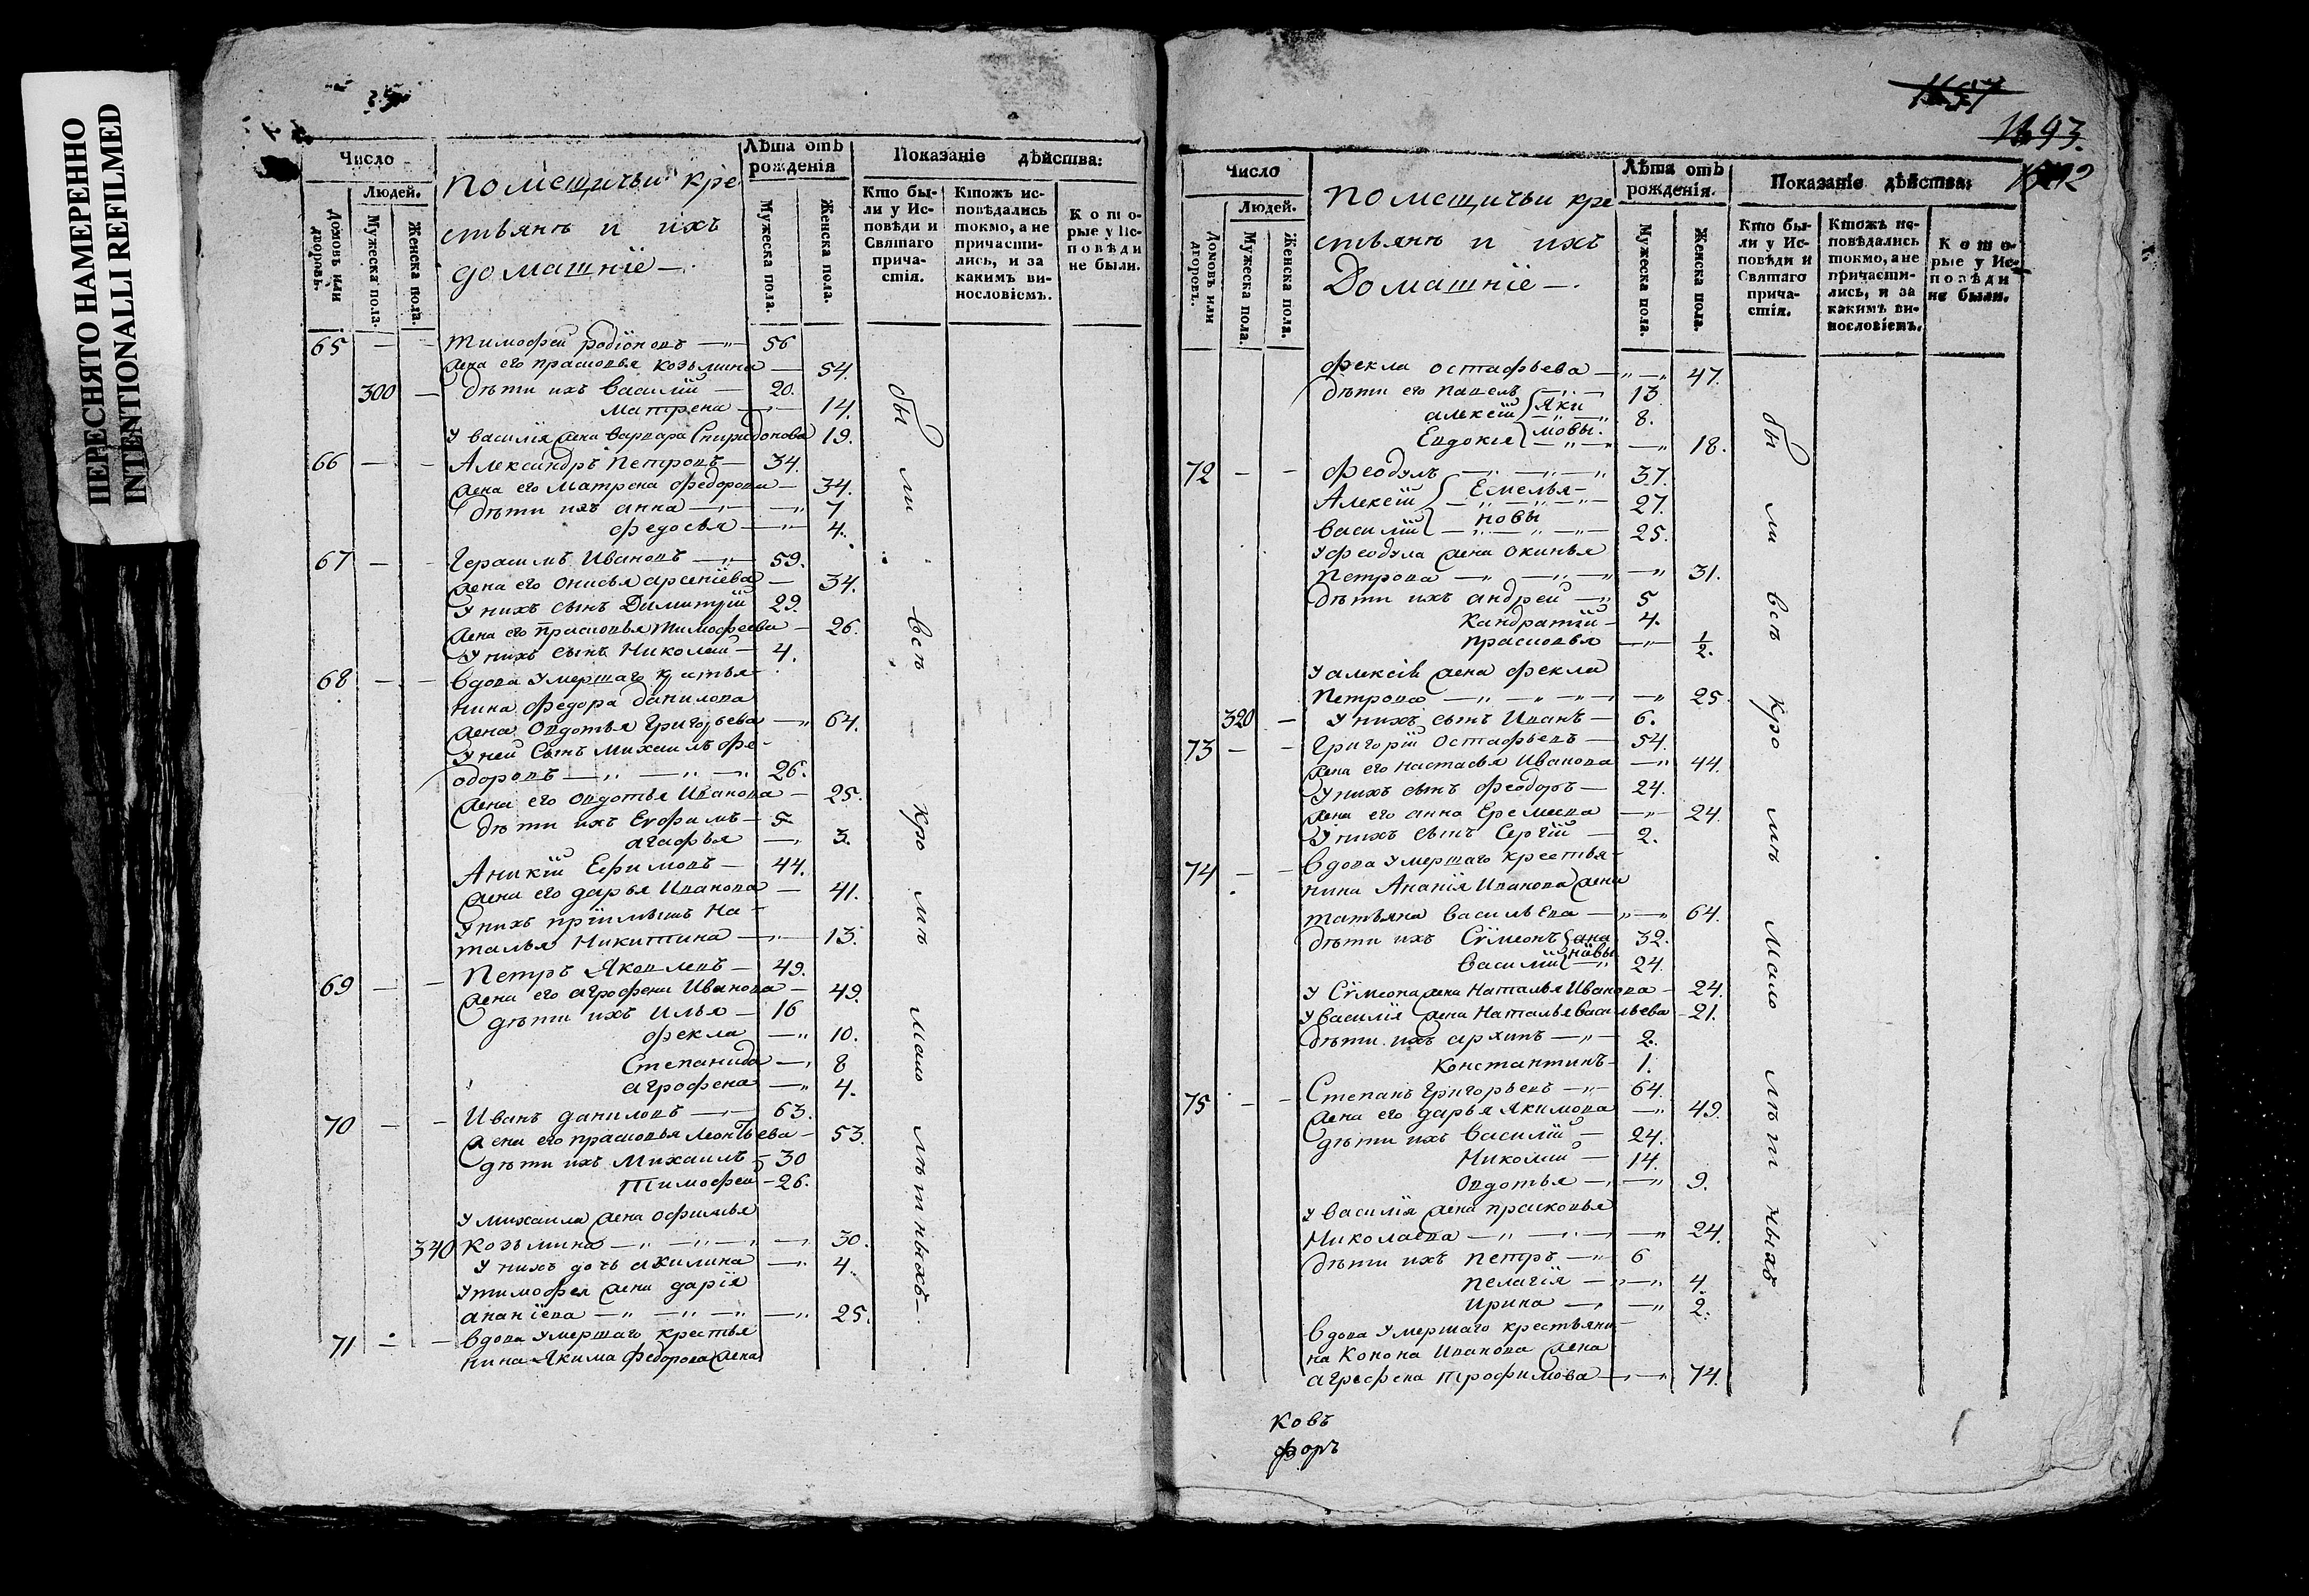 ПЕРЕСНЯТО НАМЕРЕННО
INTENTIONALLI REFILMED
Число
Людей.
Домовъ или дворовъ.
Мужеска пола.
Женска пола.
помещичьи кре
стьянъ и ихъ
домашніе —
Лѣта отъ рожденія
Мужеска пола.
Женска пола.
Показаніе дѣйства:
Кто бы-
ли у Ис-
повѣди и
Святаго
прича-
стія.
Ктожъ ис-
повѣдались
токмо, а не
причасти-
лись, и за
какимъ ви-
нословіемъ.
Кото-
рые у Ис-
повѣди
не были.
65 — — Тимофей родіоновъ — 56
жена его прасковья козьмина — 54.
300 — дѣти ихъ Василій — 20.
матрена — 14.
У василія жена варвара Спиридонова 19.
66 — — Александръ Петровъ — 34.
жена его Матрена федорова — 34.
дѣти ихъ анна — 7
федосья — 4.
67 — — Герасимъ Ивановъ — 59.
жена его онисья арсеніева — 34.
У нихъ сынъ Димитрій 29.
жена его прасковья тимофеева — 26.
У нихъ сынъ Николай — 4.
68 — — вдова умершаго крстья-
нина федора данилова
жена Овдотья Григорьева — 64.
У ней Сынъ Михаилъ фе-
одоровъ — 26.
жена его овдотья Иванова — 25.
дѣти ихъ Егофимъ — 5
агафья — 3.
Аникій Ефимовъ — 44.
жена его дарья Иванова — 41.
У нихъ пріимышъ На-
талья Никитина — 13.
69 — — Петръ Яковлевъ — 49.
жена его агрофена Иванова — 49.
дѣти ихъ Илья — 16
фекла — 10.
Степанида — 8
агрофена — 4.
70 — — Иванъ даниловъ — 63.
жена его прасковья леонтьева — 53.
дѣти ихъ Михаилъ — 30
Тимофей — 26.
У михаила жена офимья
340 козьмина — 30.
У нихъ дочь акилина — 4.
У тимофея жена дарія
ананіева — 25.
71 — — вдова умершаго крестья
нина Якима федорова жена
бы ли всѣ кро мѣ мало лѣтныхъ —
1193.
1212
Число
Людей.
Домовъ или дворовъ.
Мужеска пола.
Женска пола.
помещичьи кре
стьянъ и ихъ
Домашніе —.
Лѣта отъ рожденія.
Мужеска пола.
Женска пола.
Показаніе дѣйства:
Кто бы-
ли у Ис-
повѣди и
Святаго
прича-
стія.
Ктожъ ис-
повѣдались
токмо, а не
причасти-
лись, и за
какимъ ви-
нословіемъ.
Кото-
рые у Ис-
повѣди
не были.
фекла остафьева — 47.
дѣти его павелъ — 13
алексій } Яки 8.
Евдокія } мовы. — 18.
72 — — феодулъ — 37.
Алексій } Емелья- 27.
василій } новы 25.
У феодула жена окинья
петрова — 31.
дѣти ихъ андрей — 5
Кандратій — 4.
прасковья — 1/2.
У алексія жена фекла
петрова — 25
320 — У нихъ сынъ Иванъ — 6.
73 — — Григорій Остафьевъ — 54.
жена его настасья Иванова — 44.
У нихъ сынъ феодоръ — 24.
жена его анна Еремеева — 24.
У нихъ сынъ Сергій — 2.
74 — — вдова умершаго крестья-
нина Ананія Иванова жена
татьяна васильева — 64.
дѣти ихъ Сѵмеонъ } ана 32.
Василій } нівы 24.
У Сѵмеона жена Наталья Иванова — 24.
У василія жена Наталья васильева — 21.
дѣти ихъ архипъ — 2.
константинъ — 1.
75 — — Степанъ Григорьевъ — 64.
жена его дарья Якимова — 49.
дѣти ихъ Василій — 24.
Николай — 14.
Овдотья — 9.
У василія жена прасковья
Николаева — 24.
дѣти ихъ Петръ — 6
пелагія — 4.
Ирина — 2.
вдова умершаго крестьяни-
на Конона Иванова жена
агрофена трофимова — 74.
бы ли всѣ кро мѣ мало лѣт ныхъ
ковъ
форъ